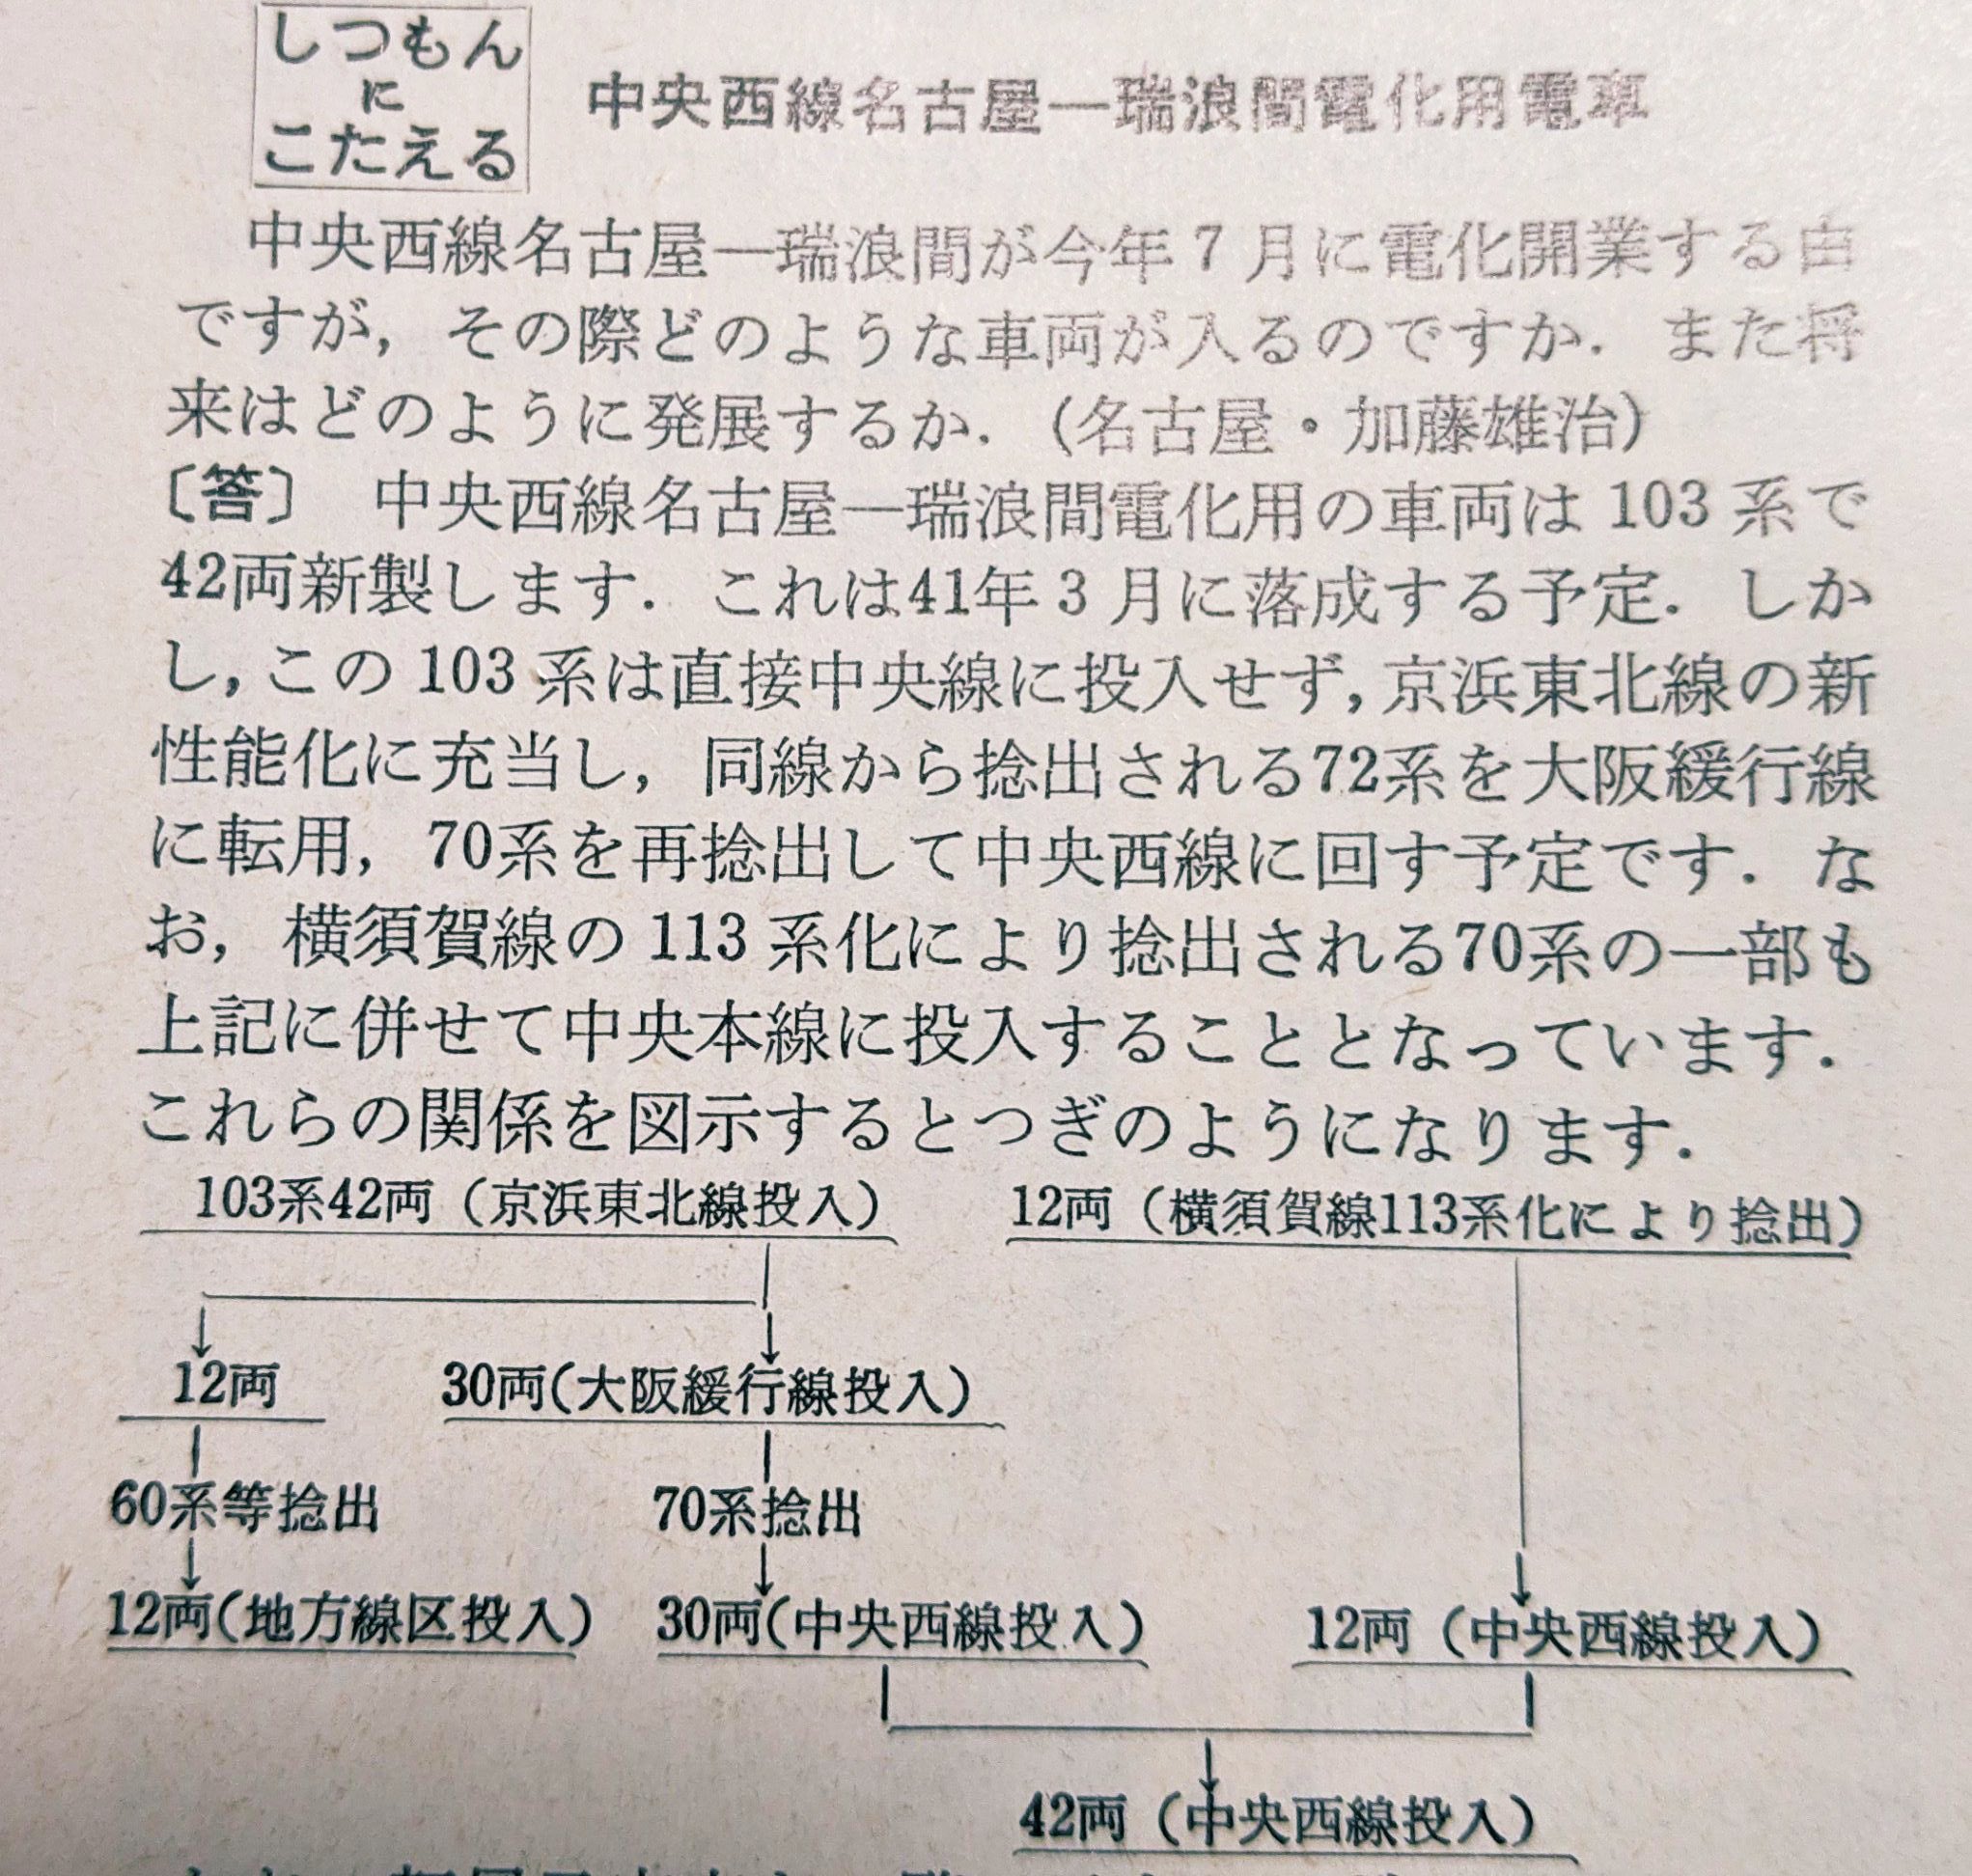 しつもん
に
こたえる
中央西線名古屋―瑞浪間電化用電車
中央西線名古屋―瑞浪間が今年7月に電化開業する由
ですが，その際どのような車両が入るのですか．また将
来はどのように発展するか．（名古屋・加藤雄治）
〔答〕　中央西線名古屋―瑞浪間電化用の車両は103系で
42両新製します．これは41年3月に落成する予定．しか
し，この103系は直接中央線に投入せず，京浜東北線の新
性能化に充当し，同線から捻出される72系を大阪緩行線
に転用，70系を再捻出して中央西線に回す予定です．な
お，横須賀線の113系化により捻出される70系の一部も
上記に併せて中央本線に投入することとなっています．
これらの関係を図示するとつぎのようになります．
103系42両（京浜東北線投入）　12両（横須賀線113系化により捻出）
12両　30両（大阪緩行線投入）
60系等捻出　70系捻出
12両（地方線区投入）　30両（中央西線投入）　12両（中央西線投入）
42両（中央西線投入）